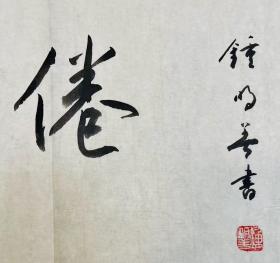 倦
鍾明善書